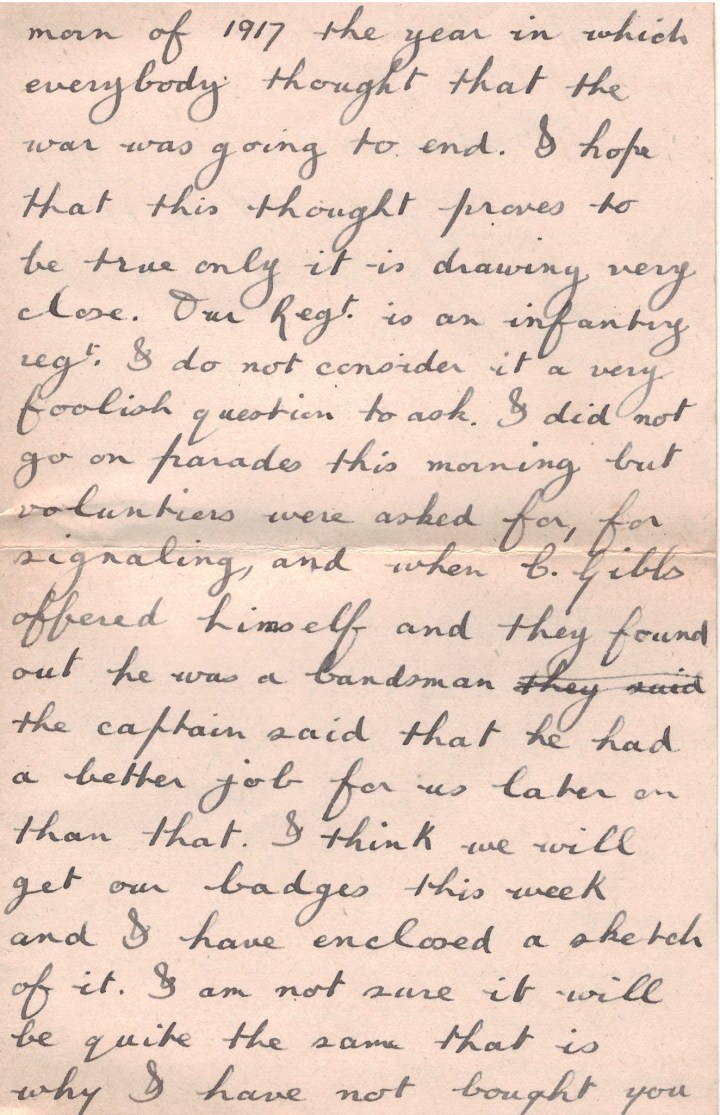 morn of 1917 the year in which
everybody thought that the
war was going to end. I hope
that this thought proves to
be true only it is drawing very
close. Our Regt. is an infantry
regt. I do not consider it a very
foolish question to ask. I did not
go on parades this morning but
voluntiers were asked for, for
signaling, and when C. Gibbs
offered himself and they found
out he was a bandsman they said
the captain said that he had
a better job for us later on
than that. I think we will
get our badges this week
and I have enclosed a sketch
of it. I am not sure it will
be quite the same that is
why I have not bought you